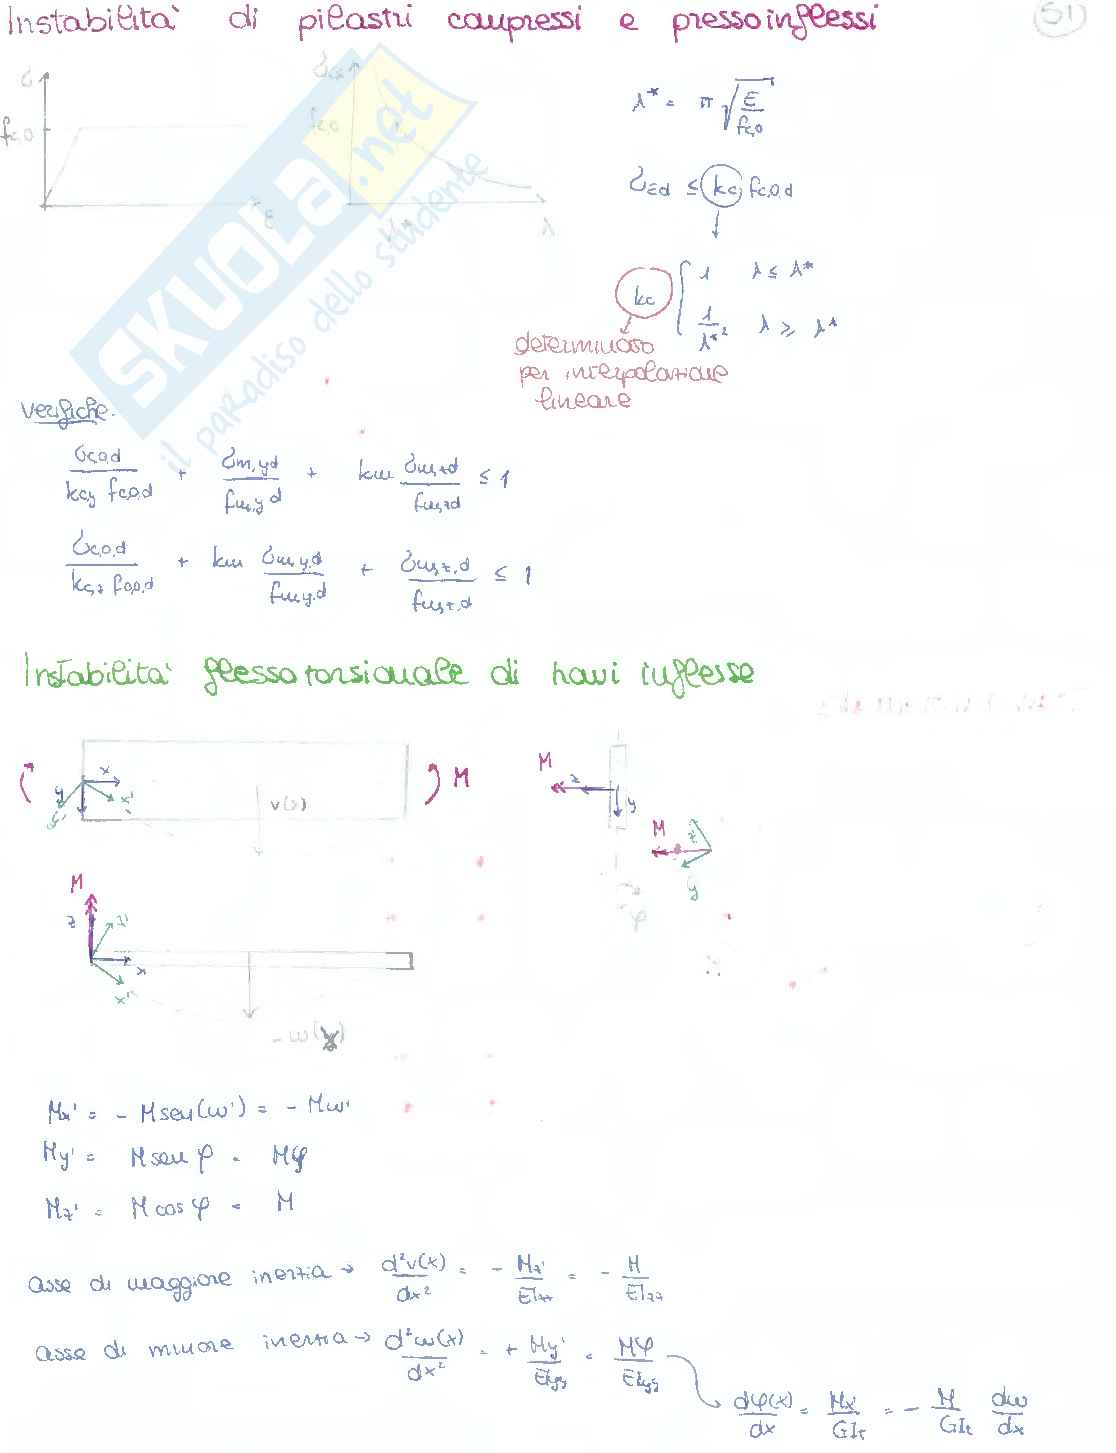 Instabilità di pilastri compressi e pressoinflessi
51
σ
fc,0
ε
σcr
fc,0
λ*
λ
λ* = π√(E/fc,0)
σEd ≤ kc fc,0,d
kc { 1 λ ≤ λ*
1/λ*² λ ≥ λ*
determinato
per interpolazione
lineare
SKUOLA.net
il paradiso dello studente
verifiche.
σc,0,d/(kc,y fc,0,d) + σm,y,d/fm,y,d + km σm,z,d/fm,z,d ≤ 1
σc,0,d/(kc,z fc,0,d) + km σm,y,d/fm,y,d + σm,z,d/fm,z,d ≤ 1
Instabilità flesso torsionale di travi inflesse
x
y
x'
y'
M
v(x)
M
z
y
M
z'
y'
φ
M
z
z'
x
x'
-w(x)
Mx' = - M sen(w') = - Mw'
My' = M sen φ = Mφ
Mz' = M cos φ = M
asse di maggiore inerzia → d²v(x)/dx² = - Mz'/EIzz = - M/EIzz
asse di minore inerzia → d²w(x)/dx² = + My'/EIyy = Mφ/EIyy
dφ(x)/dx = Mx'/GIt = - M/GIt dw/dx